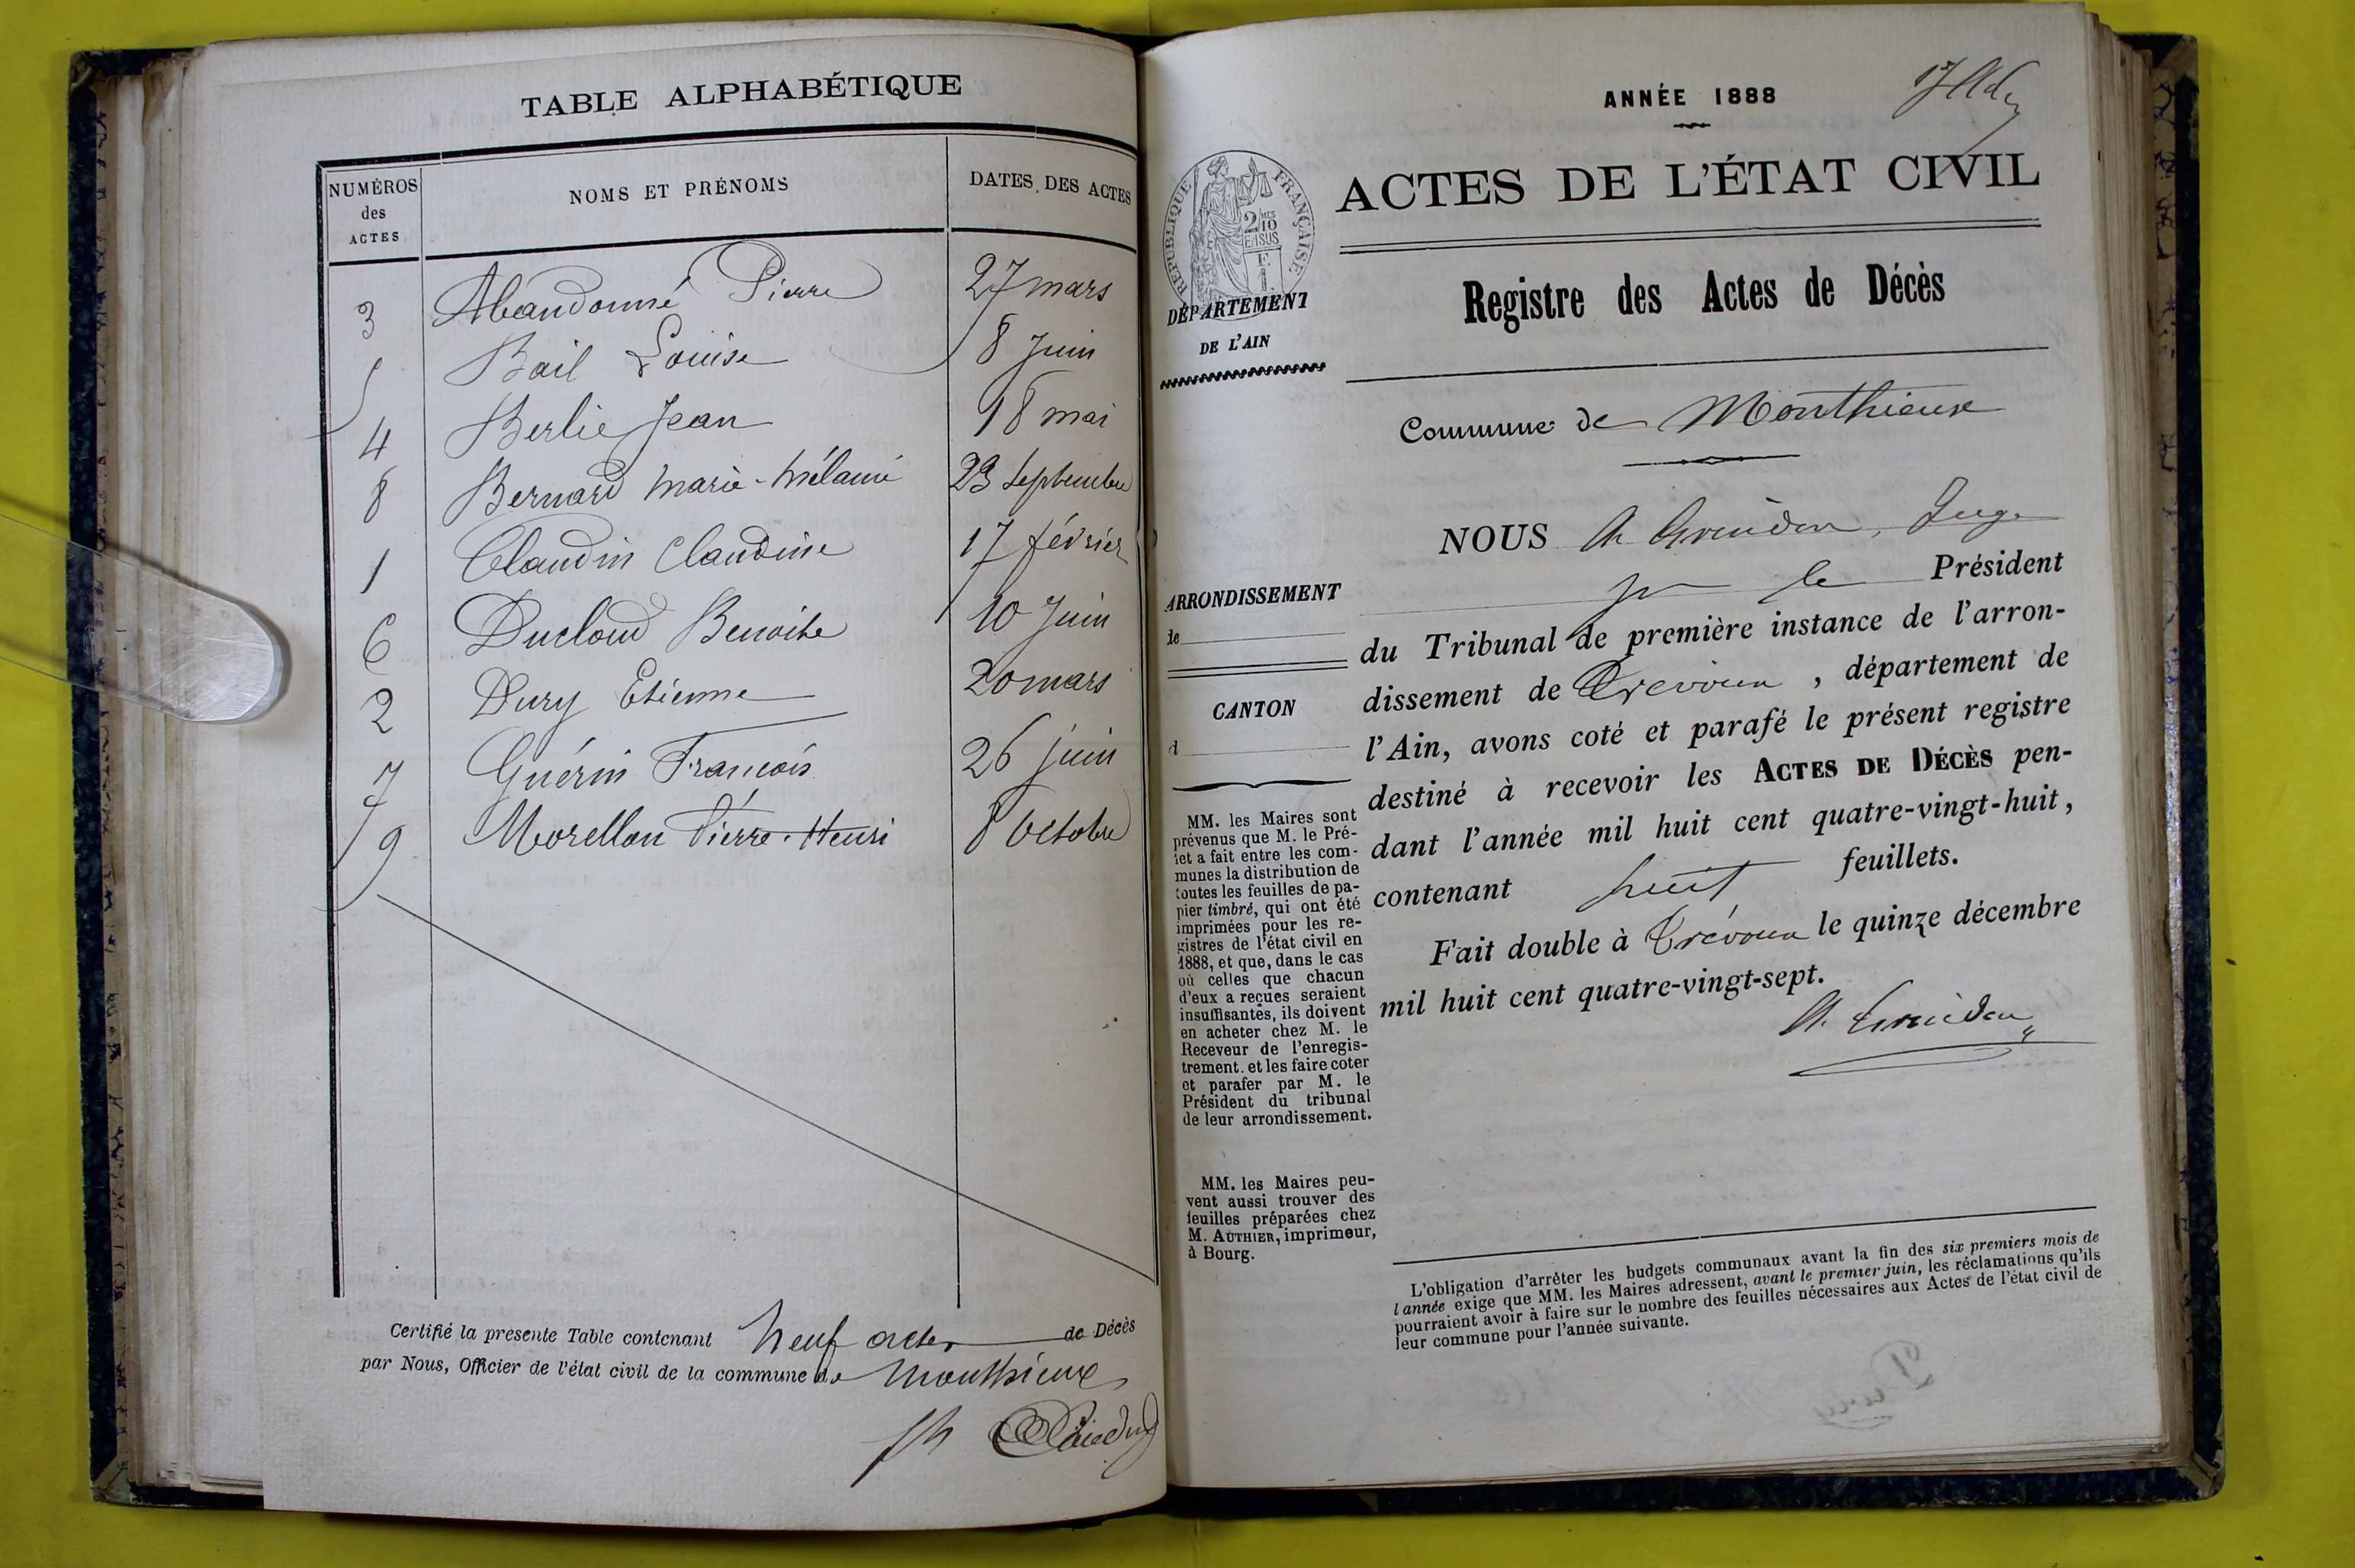 TABLE ALPHABÉTIQUE
NUMÉROS des ACTES
NOMS ET PRÉNOMS
DATES DES ACTES
3 Abandonné Pierre 27 mars
5 Bail Louise 8 Juin
4 Berlie Jean 18 mai
8 Bernard Marie-Mélanie 23 Septembre
1 Claudin Claudine 17 février
6 Ducloud Benoite 10 Juin
2 Dury Etienne 20 mars
7 Guérin François 26 juin
9 Morellon Pierre-Henri 8 Octobre
Certifié la presente Table contenant Neuf actes de Décès
par Nous, Officier de l'état civil de la commune de Monthieux
ANNÉE 1888
ACTES DE L'ÉTAT CIVIL
RÉPUBLIQUE FRANÇAISE
2/10
EN SUS
DÉPARTEMENT
DE L'AIN
Registre des Actes de Décès
Commune de Monthieux
NOUS A. Greidon, Juge
pr le Président
du Tribunal de première instance de l'arron-
dissement de Trévoux, département de
l'Ain, avons coté et parafé le présent registre
destiné à recevoir les ACTES DE DÉCÈS pen-
dant l'année mil huit cent quatre-vingt-huit,
contenant huit feuillets.
Fait double à Trévoux le quinze décembre
mil huit cent quatre-vingt-sept.
ARRONDISSEMENT
de
CANTON
d
MM. les Maires sont
prévenus que M. le Pré-
fet a fait entre les com-
munes la distribution de
toutes les feuilles de pa-
pier timbré, qui ont été
imprimées pour les re-
gistres de l'état civil en
1888, et que, dans le cas
où celles que chacun
d'eux a reçues seraient
insuffisantes, ils doivent
en acheter chez M. le
Receveur de l'enregis-
trement. et les faire coter
et parafer par M. le
Président du tribunal
de leur arrondissement.
MM. les Maires peu-
vent aussi trouver des
feuilles préparées chez
M. AUTHIER, imprimeur,
à Bourg.
L'obligation d'arrêter les budgets communaux avant la fin des six premiers mois de
l'année exige que MM. les Maires adressent, avant le premier juin, les réclamations qu'ils
pourraient avoir à faire sur le nombre des feuilles nécessaires aux Actes de l'état civil de
leur commune pour l'année suivante.